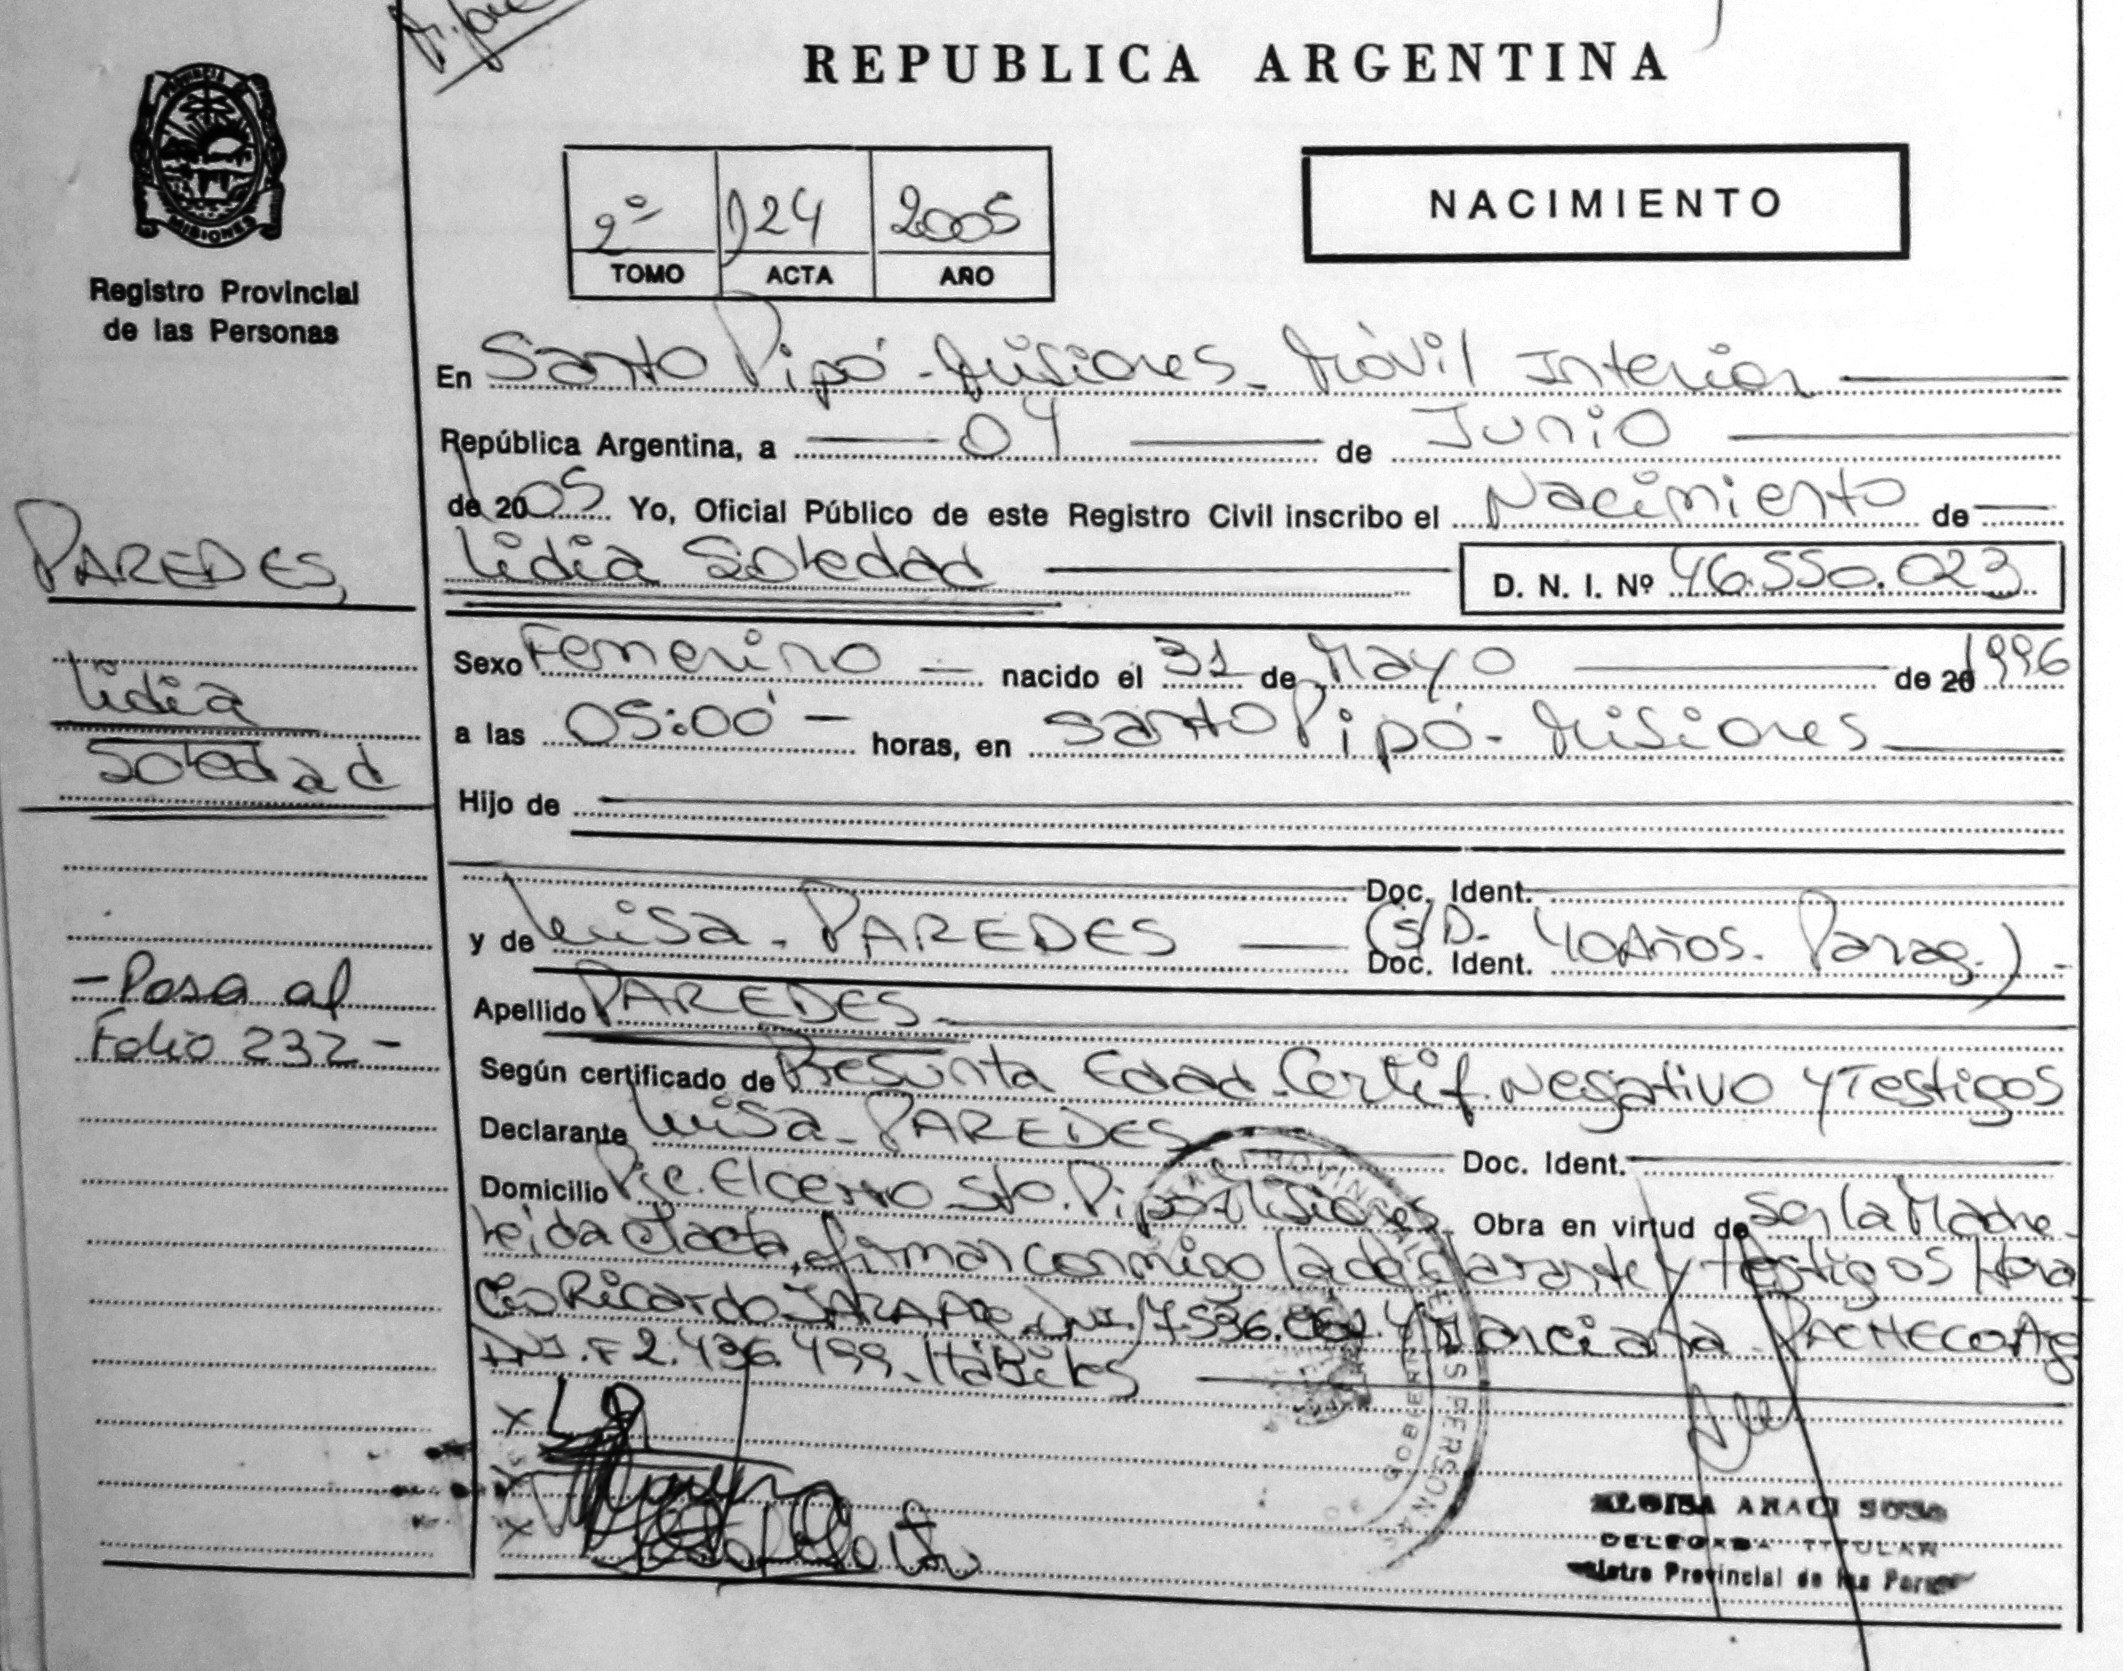 REPUBLICA ARGENTINA
PROVINCIA
MISIONES
Registro Provincial
de las Personas
2º 124 2005
TOMO ACTA AÑO
NACIMIENTO
En Santo Pipó - Misiones - Móvil Interior
República Argentina, a 04 de Junio
de 2005 Yo, Oficial Público de este Registro Civil inscribo el Nacimiento de
Lidia Soledad D. N. I. Nº 46.550.023
PAREDES,
Lidia
Soledad
Sexo Femenino nacido el 31 de Mayo de 20 1996
a las 05:00 horas, en Santo Pipó - Misiones
Hijo de
Doc. Ident.
y de Luisa - PAREDES Doc. Ident. (S/D. 40 Años. Parag.)
- Pasa al
Folio 232 -
Apellido PAREDES
Según certificado de Presunta Edad - Certif. Negativo y Testigos
Declarante Luisa - PAREDES Doc. Ident.
Domicilio Pic. El cerro Sto. Pipó - Misiones Obra en virtud de Ser la Madre
Leída el acta, firman conmigo la declarante y testigos Hora
cio Ricardo JARA DNI. 7.536. y Marciana PACHECO
DNI. F 2.436.499. Hábiles
DELEGADA TITULAR
Registro Provincial de las Personas